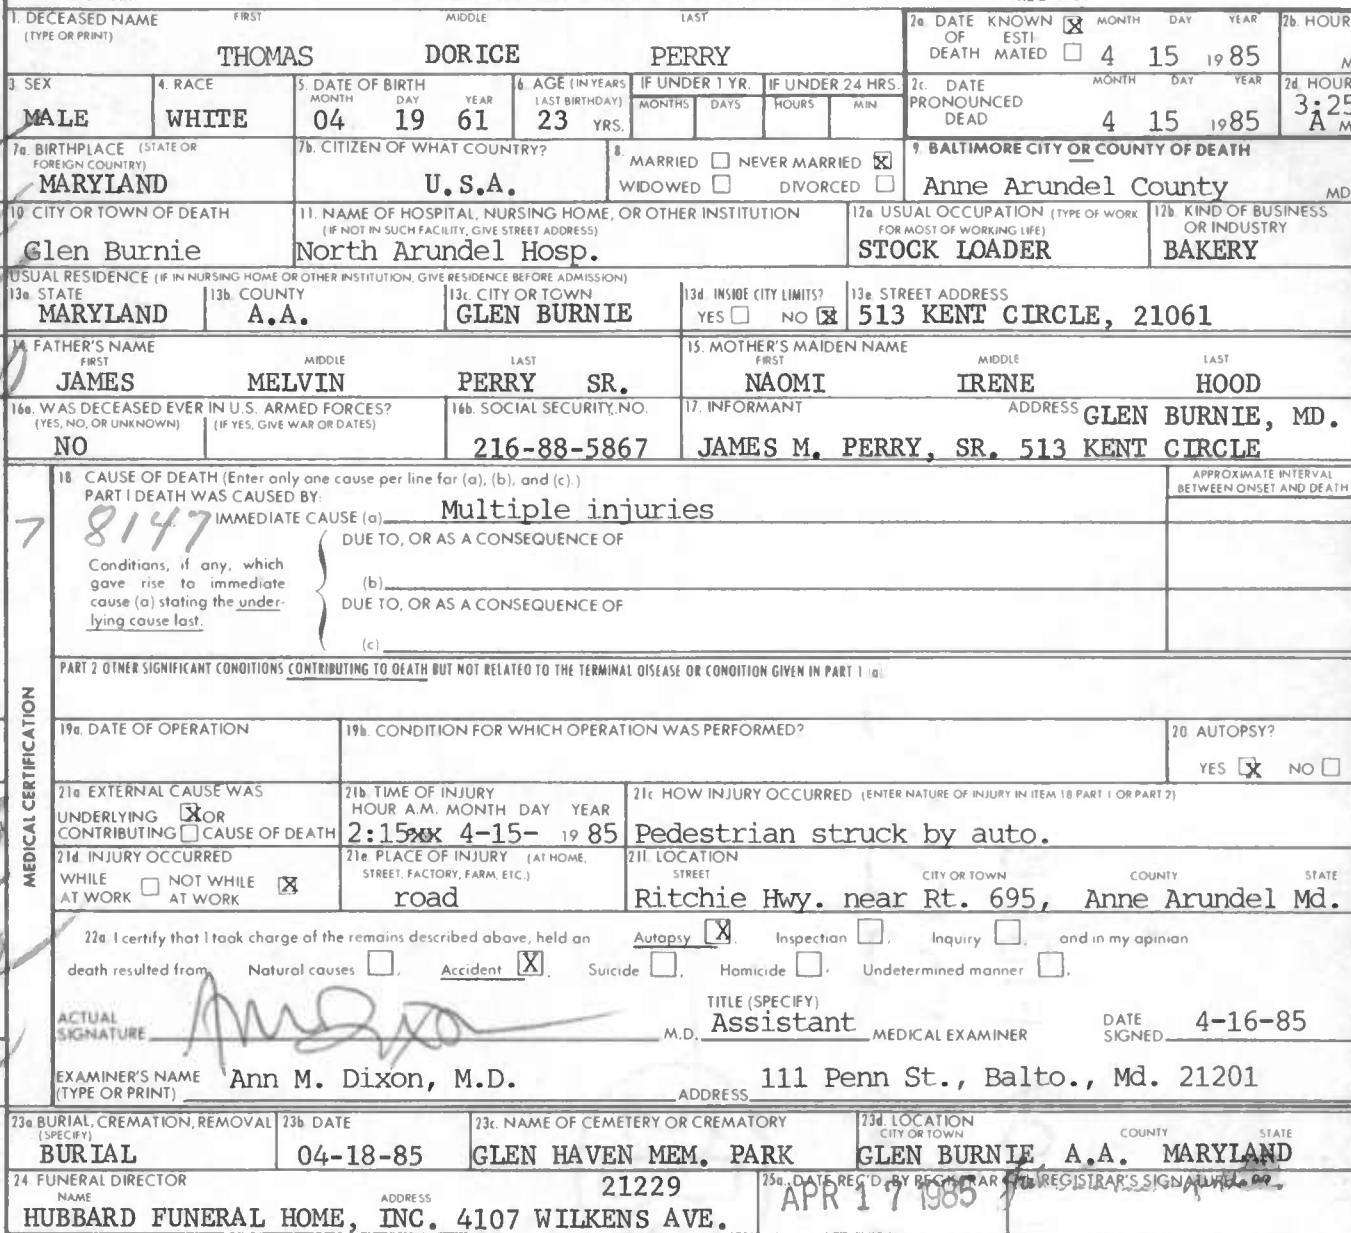 1. DECEASED NAME FIRST MIDDLE LAST
(TYPE OR PRINT)
THOMAS DORICE PERRY
2a. DATE KNOWN X MONTH DAY YEAR
OF ESTI-
DEATH MATED 4 15 1985
2b. HOUR
M
3. SEX
MALE
4. RACE
WHITE
5. DATE OF BIRTH
MONTH DAY YEAR
04 19 61
6. AGE (IN YEARS
LAST BIRTHDAY)
23 YRS.
IF UNDER 1 YR.
MONTHS DAYS
IF UNDER 24 HRS.
HOURS MIN
2c. DATE MONTH DAY YEAR
PRONOUNCED
DEAD 4 15 1985
2d HOUR
3:25
A M
7a. BIRTHPLACE (STATE OR
FOREIGN COUNTRY)
MARYLAND
7b. CITIZEN OF WHAT COUNTRY?
U.S.A.
8.
MARRIED NEVER MARRIED X
WIDOWED DIVORCED
9. BALTIMORE CITY OR COUNTY OF DEATH
Anne Arundel County MD
10. CITY OR TOWN OF DEATH
Glen Burnie
11. NAME OF HOSPITAL, NURSING HOME, OR OTHER INSTITUTION
(IF NOT IN SUCH FACILITY, GIVE STREET ADDRESS)
North Arundel Hosp.
12a USUAL OCCUPATION (TYPE OF WORK
FOR MOST OF WORKING LIFE)
STOCK LOADER
12b. KIND OF BUSINESS
OR INDUSTRY
BAKERY
USUAL RESIDENCE (IF IN NURSING HOME OR OTHER INSTITUTION, GIVE RESIDENCE BEFORE ADMISSION)
13a. STATE
MARYLAND
13b. COUNTY
A.A.
13c. CITY OR TOWN
GLEN BURNIE
13d. INSIDE CITY LIMITS?
YES NO X
13e STREET ADDRESS
513 KENT CIRCLE, 21061
14. FATHER'S NAME
FIRST MIDDLE LAST
JAMES MELVIN PERRY SR.
15. MOTHER'S MAIDEN NAME
FIRST MIDDLE LAST
NAOMI IRENE HOOD
16a. WAS DECEASED EVER IN U.S. ARMED FORCES?
(YES, NO, OR UNKNOWN) (IF YES, GIVE WAR OR DATES)
NO
16b. SOCIAL SECURITY NO.
216-88-5867
17. INFORMANT ADDRESS GLEN BURNIE, MD.
JAMES M. PERRY, SR. 513 KENT CIRCLE
MEDICAL CERTIFICATION
7
18 CAUSE OF DEATH (Enter only one cause per line for (a), (b), and (c).)
PART I DEATH WAS CAUSED BY:
8147 IMMEDIATE CAUSE (a) Multiple injuries
APPROXIMATE INTERVAL
BETWEEN ONSET AND DEATH
DUE TO, OR AS A CONSEQUENCE OF
Conditions, if any, which
gave rise to immediate
cause (a) stating the under-
lying cause last.
(b)
DUE TO, OR AS A CONSEQUENCE OF
(c)
PART 2 OTHER SIGNIFICANT CONDITIONS CONTRIBUTING TO DEATH BUT NOT RELATED TO THE TERMINAL DISEASE OR CONDITION GIVEN IN PART 1 (a)
19a. DATE OF OPERATION
19b. CONDITION FOR WHICH OPERATION WAS PERFORMED?
20. AUTOPSY?
YES X NO
21a EXTERNAL CAUSE WAS
UNDERLYING X OR
CONTRIBUTING CAUSE OF DEATH
21b. TIME OF INJURY
HOUR A.M. MONTH DAY YEAR
2:15xx 4-15- 1985
21c HOW INJURY OCCURRED (ENTER NATURE OF INJURY IN ITEM 18 PART 1 OR PART 2)
Pedestrian struck by auto.
21d. INJURY OCCURRED
WHILE NOT WHILE X
AT WORK AT WORK
21e PLACE OF INJURY (AT HOME,
STREET, FACTORY, FARM, ETC.)
road
21f. LOCATION
STREET CITY OR TOWN COUNTY STATE
Ritchie Hwy. near Rt. 695, Anne Arundel Md.
22a. I certify that I took charge of the remains described above, held an Autopsy X, Inspection, Inquiry, and in my opinion
death resulted from Natural causes, Accident X, Suicide, Homicide, Undetermined manner.
ACTUAL
SIGNATURE Ann Dixon M.D.
TITLE (SPECIFY)
Assistant MEDICAL EXAMINER
DATE
SIGNED 4-16-85
EXAMINER'S NAME
(TYPE OR PRINT) Ann M. Dixon, M.D.
ADDRESS 111 Penn St., Balto., Md. 21201
23a BURIAL, CREMATION, REMOVAL
(SPECIFY)
BURIAL
23b. DATE
04-18-85
23c. NAME OF CEMETERY OR CREMATORY
GLEN HAVEN MEM. PARK
23d. LOCATION
CITY OR TOWN COUNTY STATE
GLEN BURNIE A.A. MARYLAND
24. FUNERAL DIRECTOR
NAME ADDRESS 21229
HUBBARD FUNERAL HOME, INC. 4107 WILKENS AVE.
25a. DATE REC'D. BY REGISTRAR
APR 17 1985
REGISTRAR'S SIGNATURE